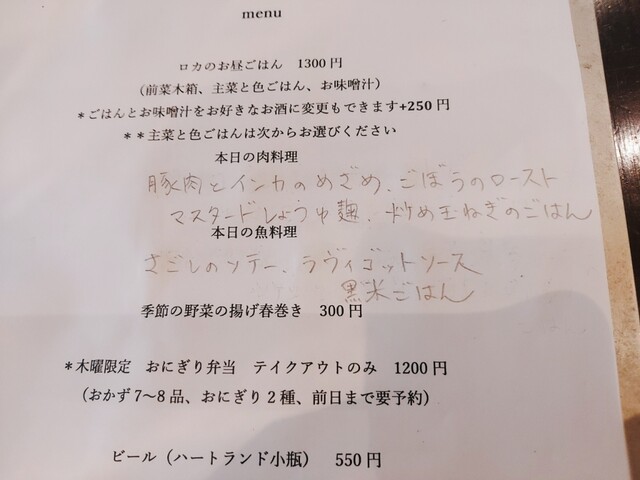 menu
ロカのお昼ごはん 1300円
（前菜木箱、主菜と色ごはん、お味噌汁）
＊ごはんとお味噌汁をお好きなお酒に変更もできます+250円
＊＊主菜と色ごはんは次からお選びください
本日の肉料理
豚肉とインカのめざめ、ごぼうのロースト
マスタードしょうゆ麹、炒め玉ねぎのごはん
本日の魚料理
さごしのソテー、ラヴィゴットソース
黒米ごはん
季節の野菜の揚げ春巻き 300円
＊木曜限定 おにぎり弁当 テイクアウトのみ 1200円
（おかず7～8品、おにぎり2種、前日まで要予約）
ビール（ハートランド小瓶） 550円